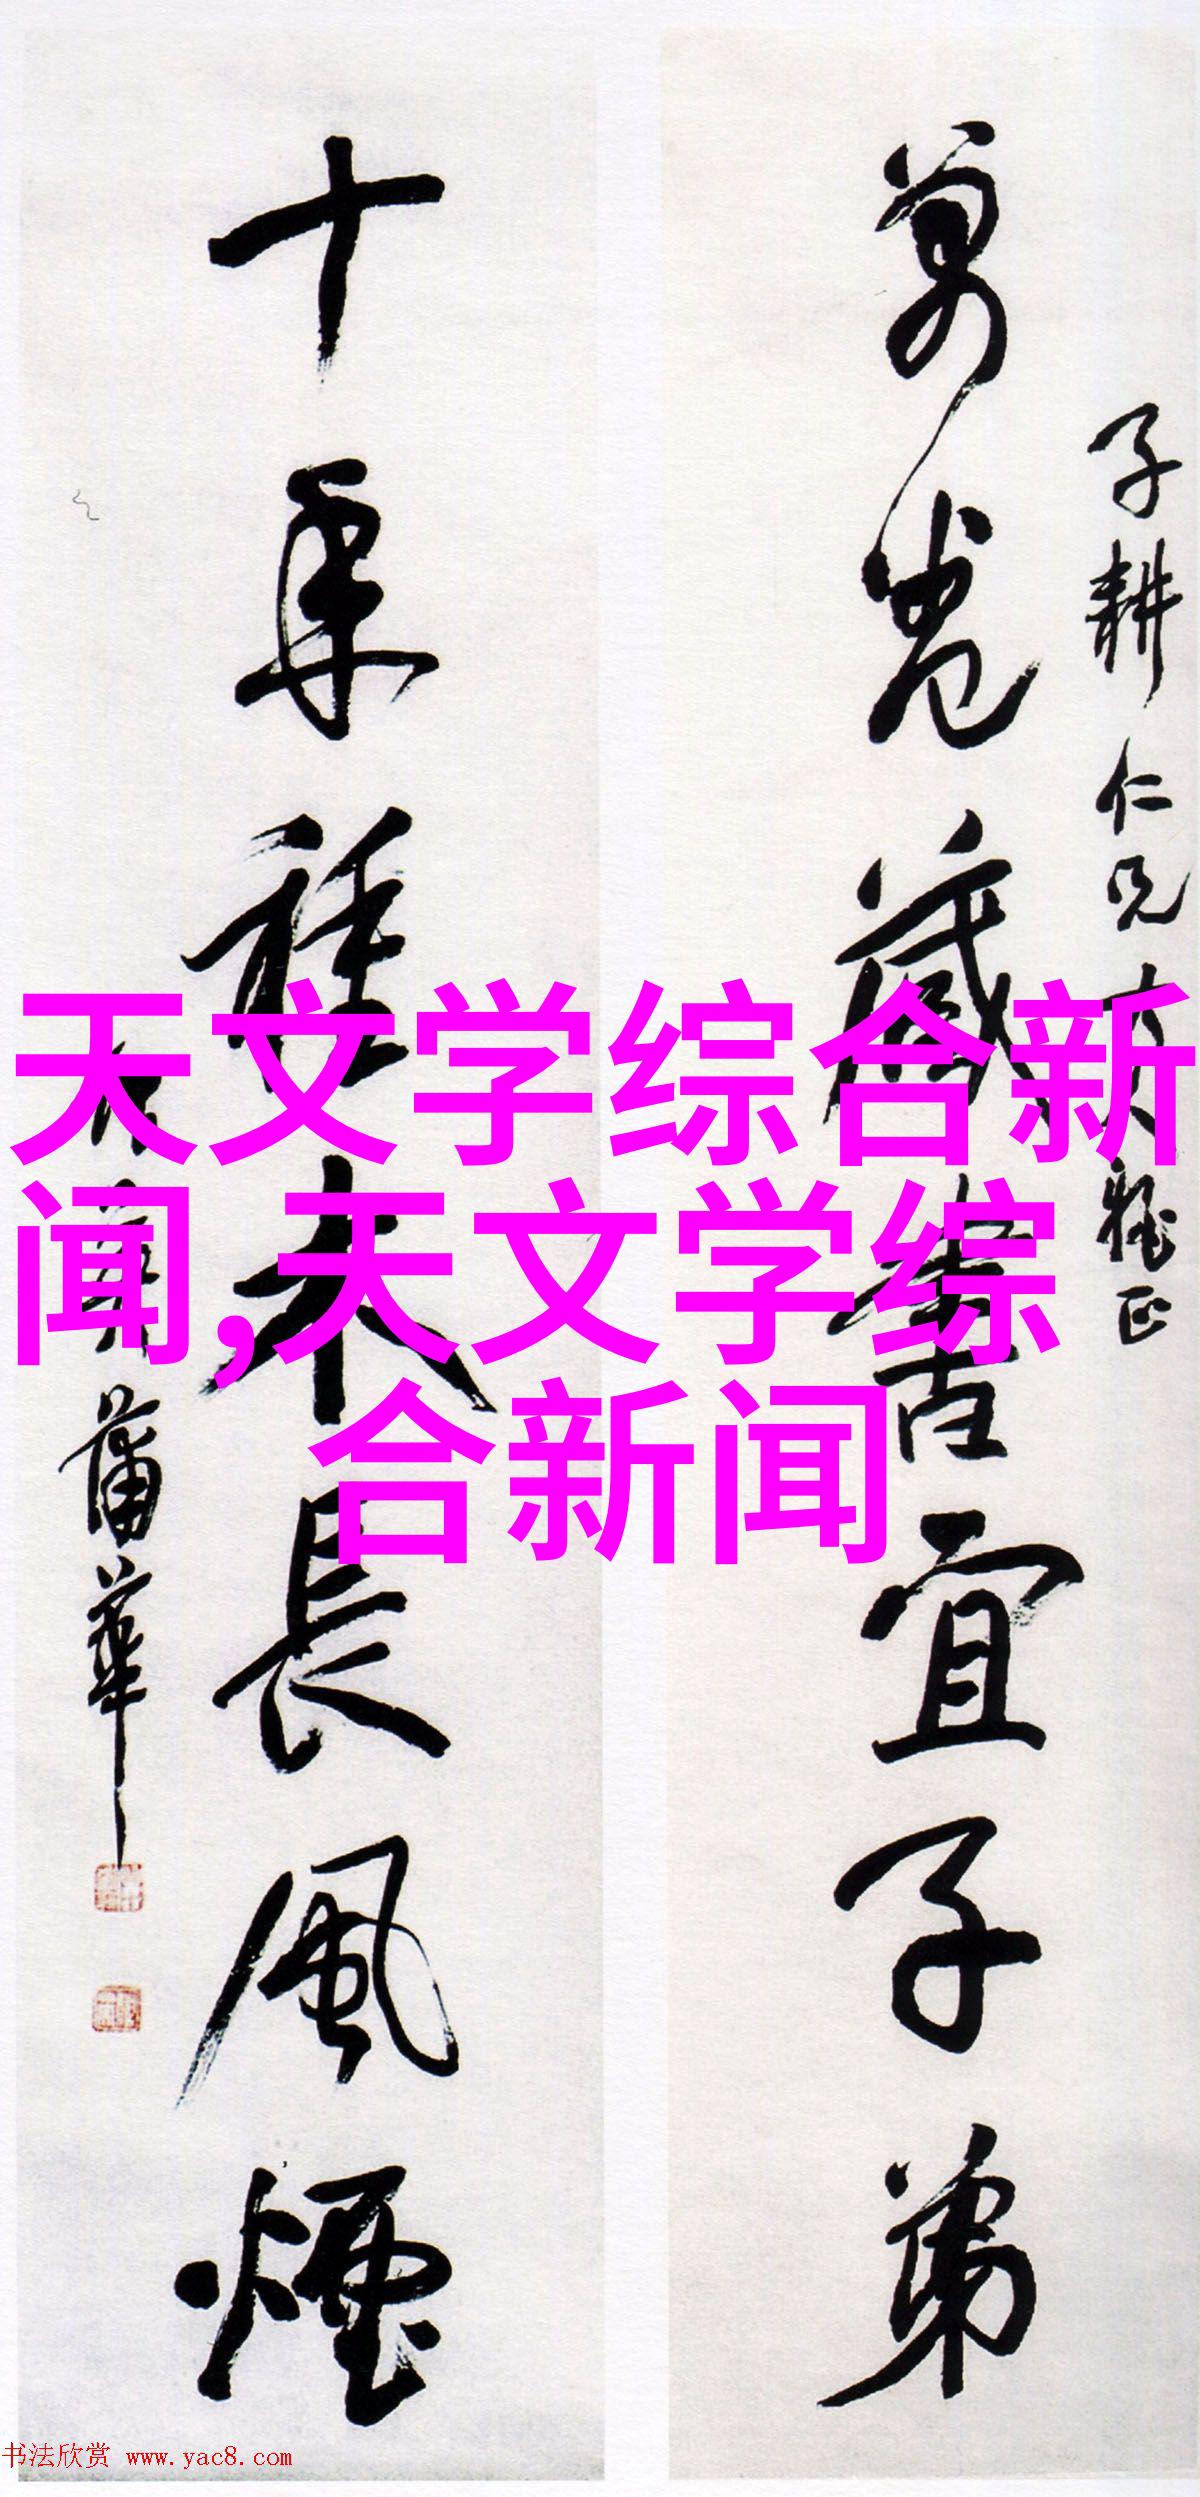 子耕仁兄大人雅正
萬卷藏書宜子弟
十年種木長風煙
蒲華
天文学综合新
闻,天文学综
合新闻
书法欣赏 www.yac8.com